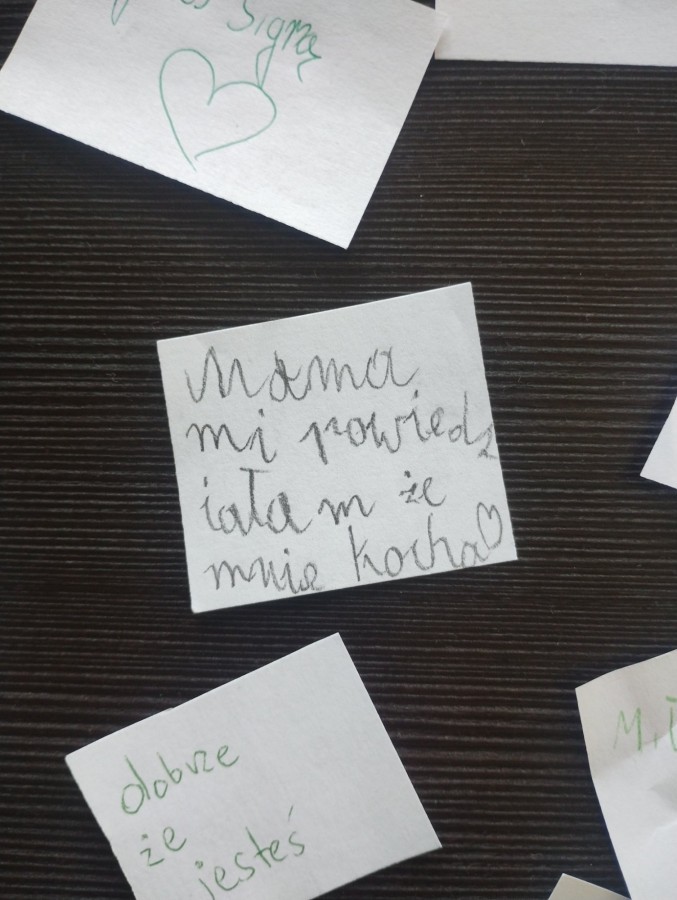 Mama
mi powiedz
iała m że
mnie kocha♡
dobrze
że
jesteś